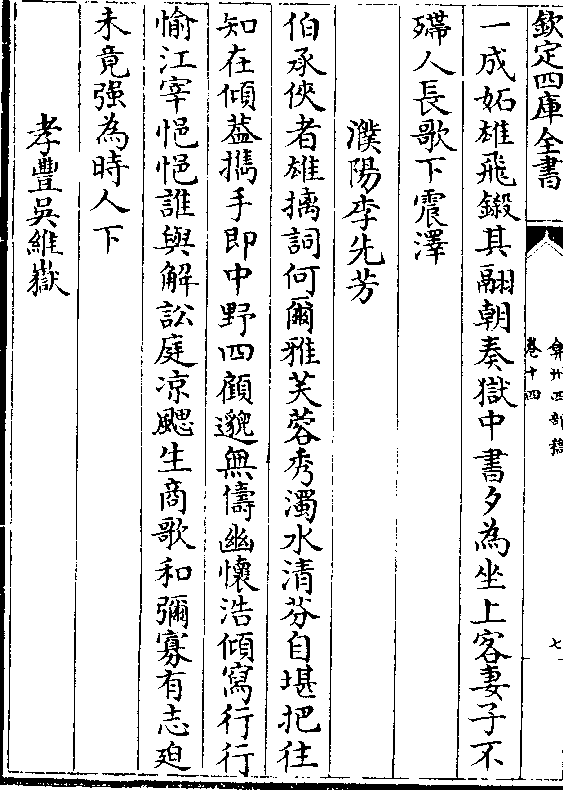 欽定四庫全書
弇州四部稿
卷十四
七
一成妬雄飛鎩其翮朝奏獄中書夕為坐上客妻子不
殢人長歌下震澤
濮陽李先芳
伯承俠者雄摛詞何爾雅芙蓉秀濁水清芬自堪把往
知在傾葢攜手即中野四顧邈無儔幽懷浩傾寫行行
愉江宰悒悒誰與解訟庭凉颸生商歌和彌寡有志廹
未竟强為時人下
孝豐吳維嶽